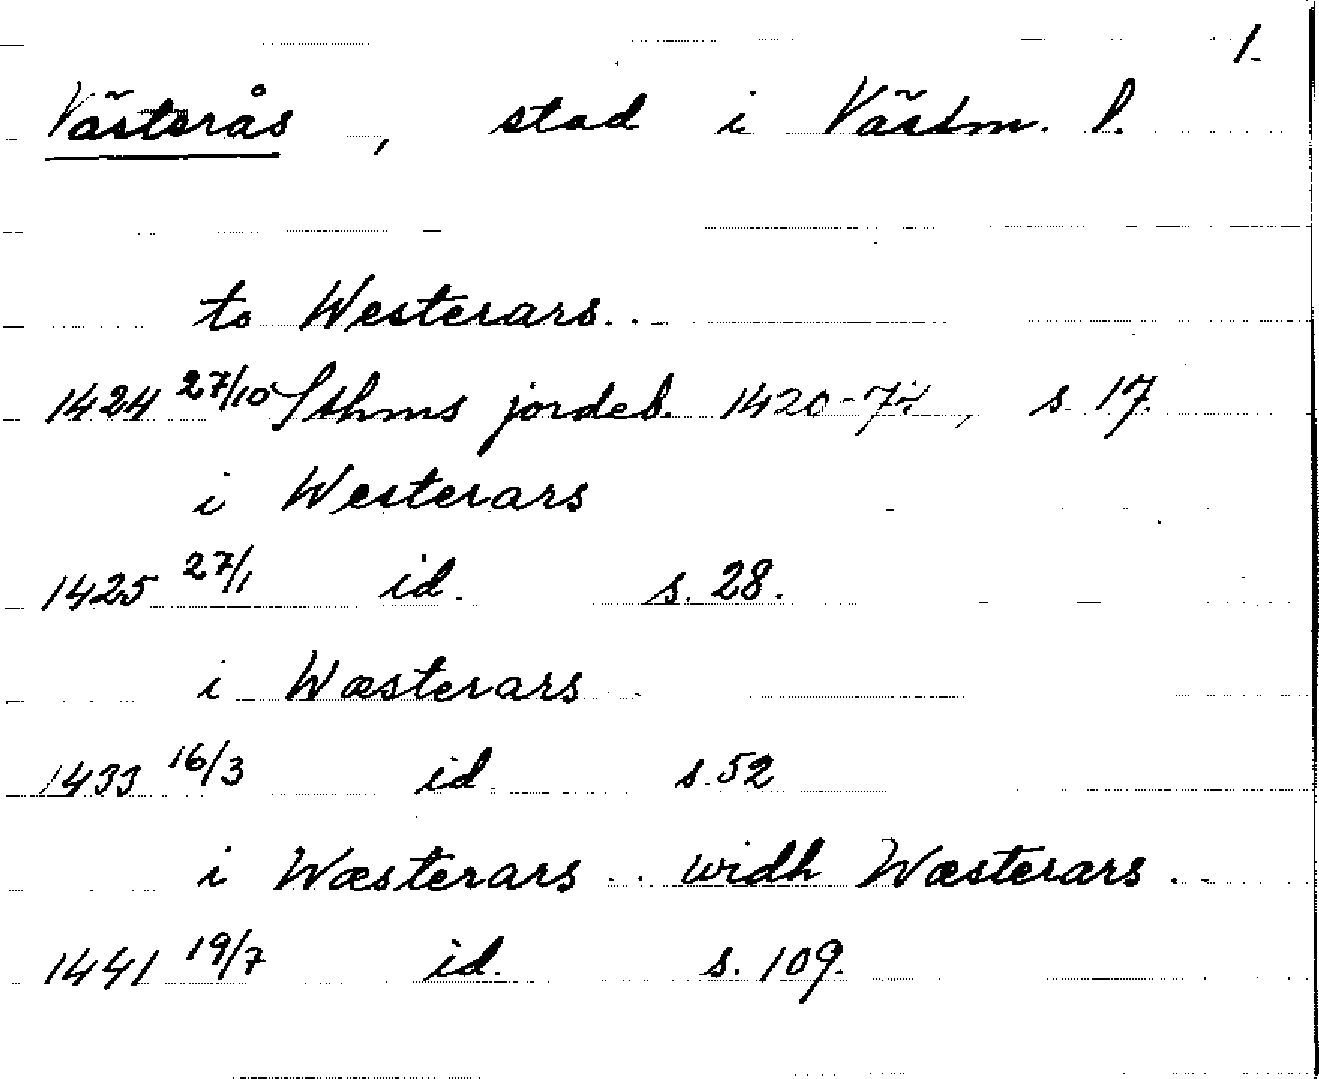 1.
Västerås, stad i Västm. l.
to Westerars..
1424 27/10 Sthms jordeb. 1420-74, s. 17.
i Westerars
1425 27/1 id. s. 28.
i Wæsterars
1433 16/3 id. s. 52
i Wæsterars .. widh Wæsterars ..
1441 19/7 id. s. 109.